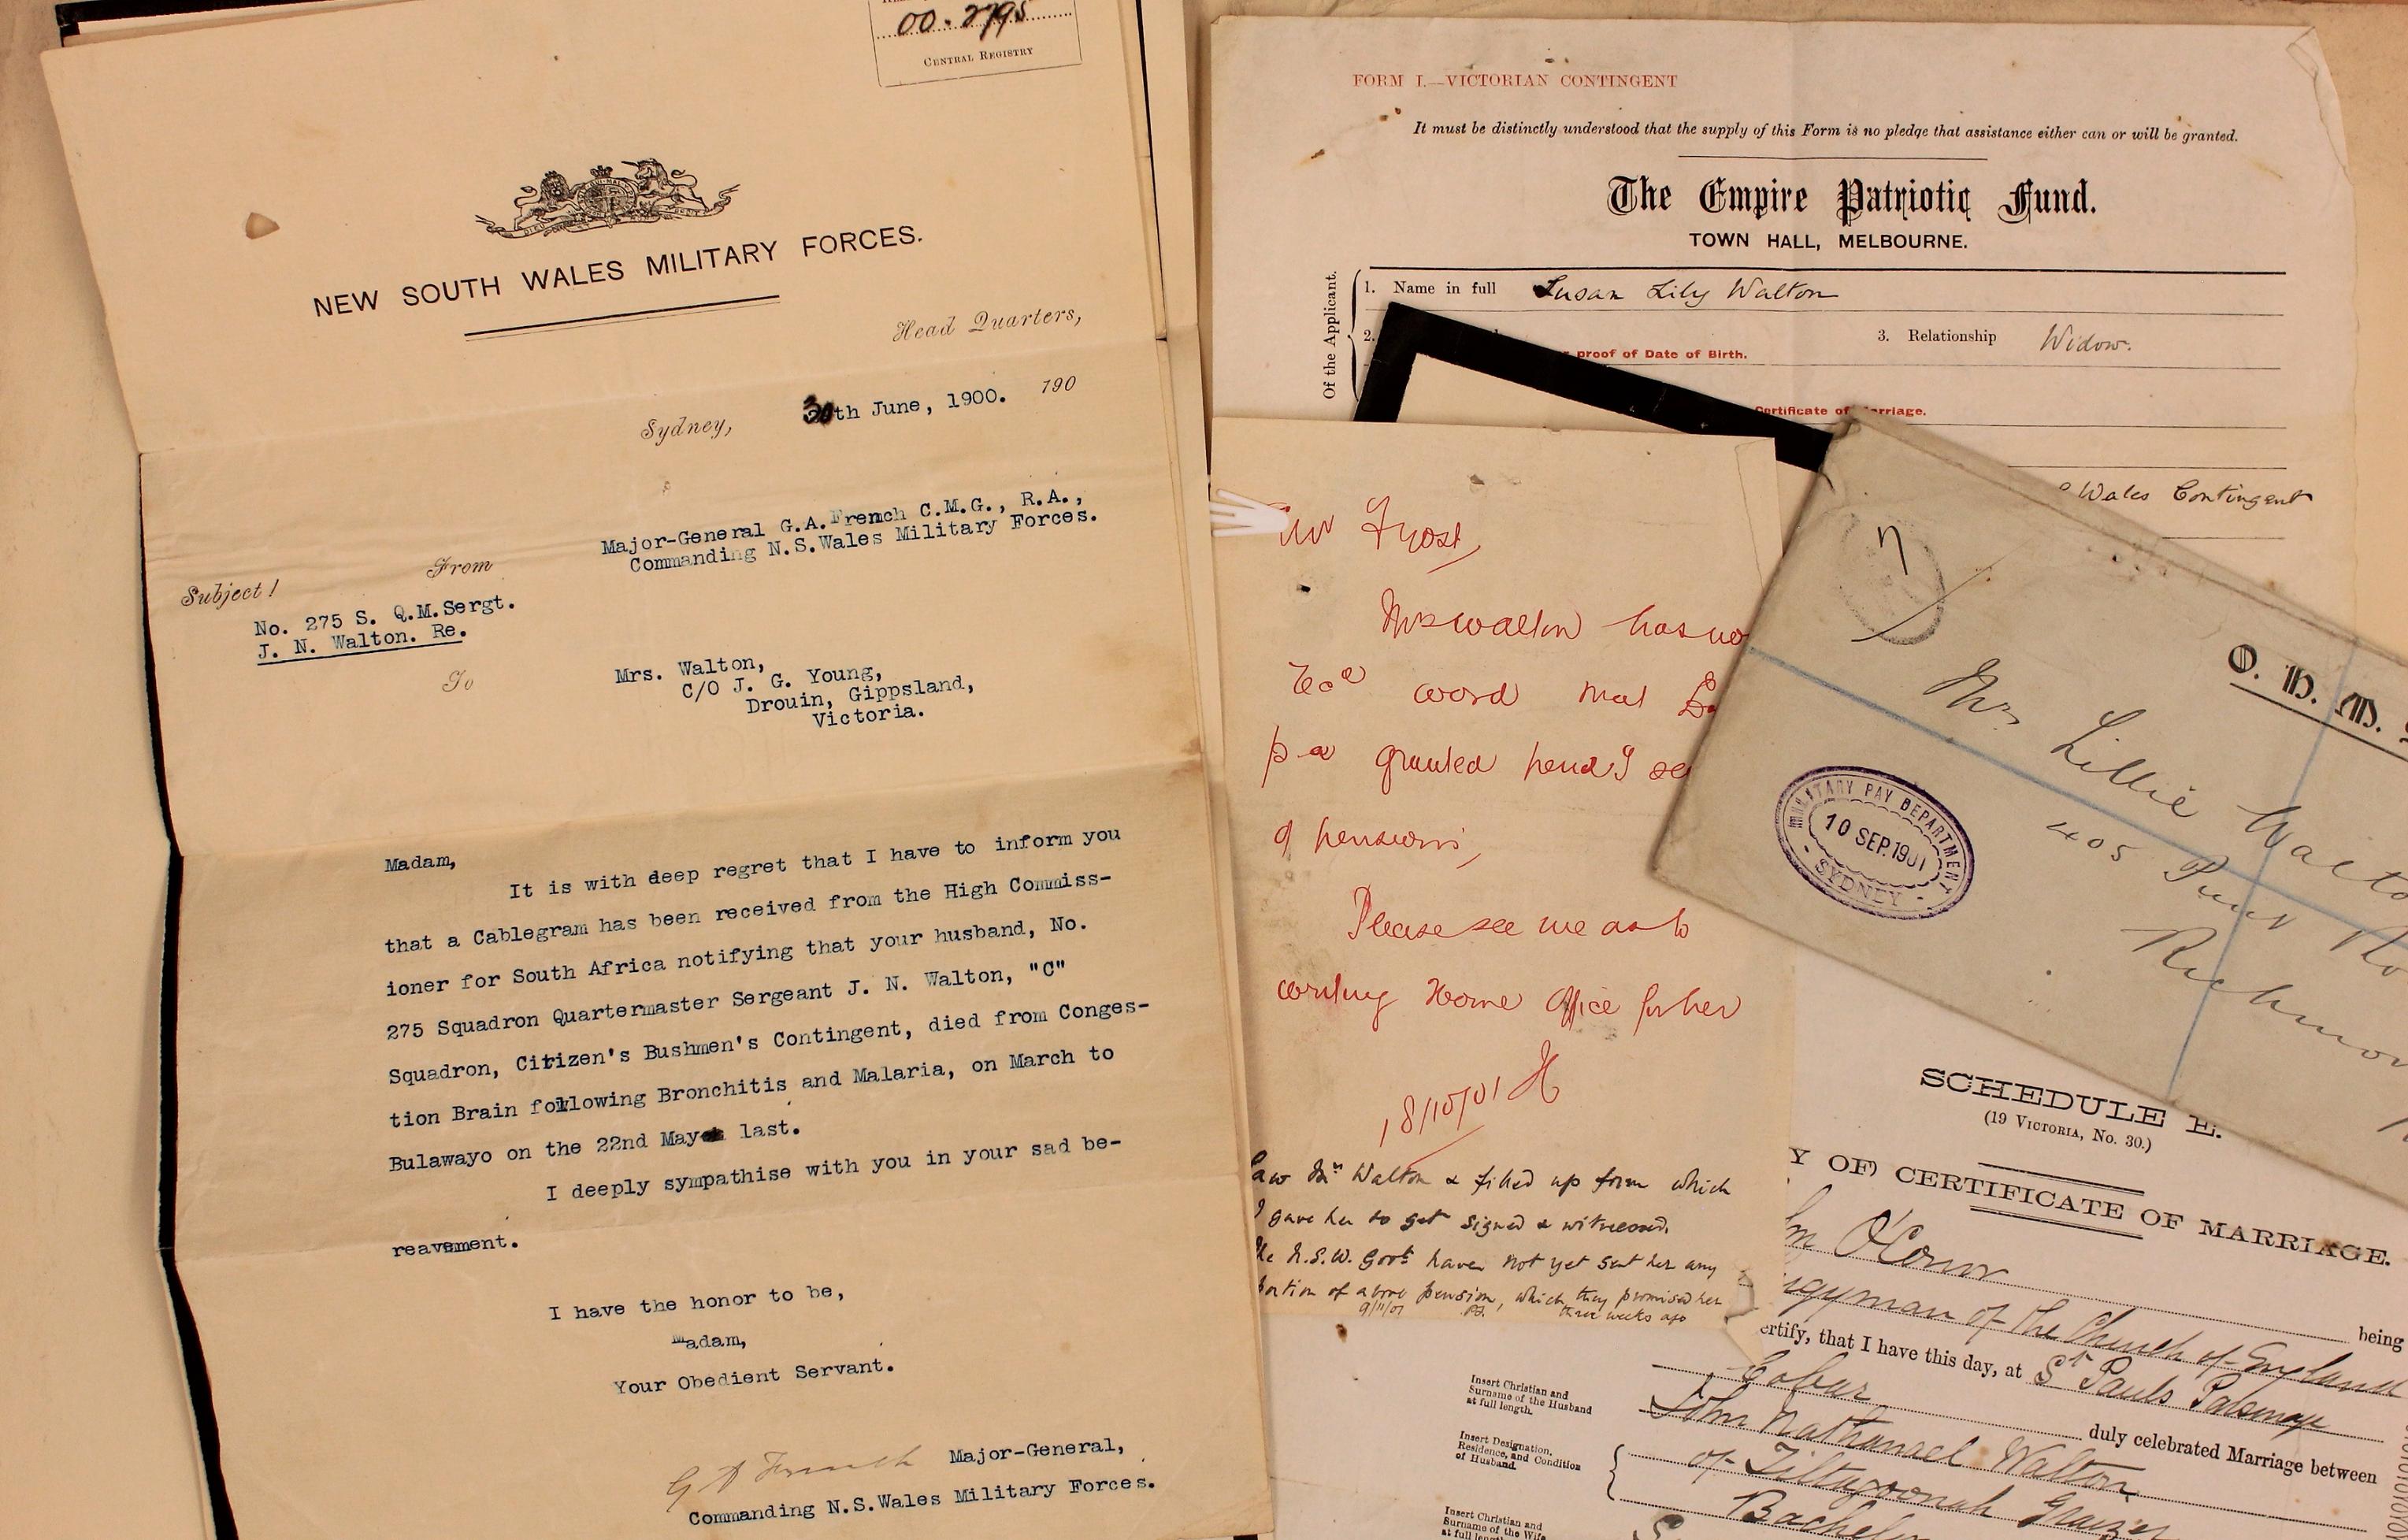 00.2795
CENTRAL REGISTRY
NEW SOUTH WALES MILITARY FORCES.
Head Quarters,
Sydney, 30th June, 1900. 190
From
Major-General G.A.French C.M.G., R.A.,
Commanding N.S.Wales Military Forces.
Subject!
No. 275 S. Q.M.Sergt.
J. N. Walton. Re.
To
Mrs. Walton,
C/O J. G. Young,
Drouin, Gippsland,
Victoria.
Madam,
It is with deep regret that I have to inform you
that a Cablegram has been received from the High Commiss-
ioner for South Africa notifying that your husband, No.
275 Squadron Quartermaster Sergeant J. N. Walton, "C"
Squadron, Citizen's Bushmen's Contingent, died from Conges-
tion Brain following Bronchitis and Malaria, on March to
Bulawayo on the 22nd May last.
I deeply sympathise with you in your sad be-
reavement.
I have the honor to be,
Madam,
Your Obedient Servant.
G A French Major-General,
Commanding N.S.Wales Military Forces.
FORM I.—VICTORIAN CONTINGENT
It must be distinctly understood that the supply of this Form is no pledge that assistance either can or will be granted.
The Empire Patriotic Fund.
TOWN HALL, MELBOURNE.
Of the Applicant.
1. Name in full Susan Lily Walton
2. 3. Relationship Widow.
proof of Date of Birth.
Certificate of Marriage.
Wales Contingent
Mr Frost,
Mrs Walton has
word that £
p a granted
of pensions,
Please see me as to
writing Home Office for her
18/10/01 H
Saw Mrs Walton & filled up form which
I gave her to get signed & witnessed.
The N.S.W. Govt have not yet sent her any
portion of above pension, which they promised her
three weeks ago
9/11/01
7
O. H. M.
Mrs Lillie Walto
405 Punt Ro
Richmon
MILITARY PAY DEPARTMENT
10 SEP.1901
- SYDNEY -
SCHEDULE E.
(19 VICTORIA, No. 30.)
Y OF) CERTIFICATE OF MARRIAGE.
O'Conor
being
gyman of the Church of England
ertify, that I have this day, at St Pauls
Cobar
duly celebrated Marriage between
Insert Christian and
Surname of the Husband
at full length.
John Nathanael Walton
Insert Designation,
Residence, and Condition
of Husband.
of Tiltagoonah Grazier
Bachel
Insert Christian and
Surname of the Wife
at full leng